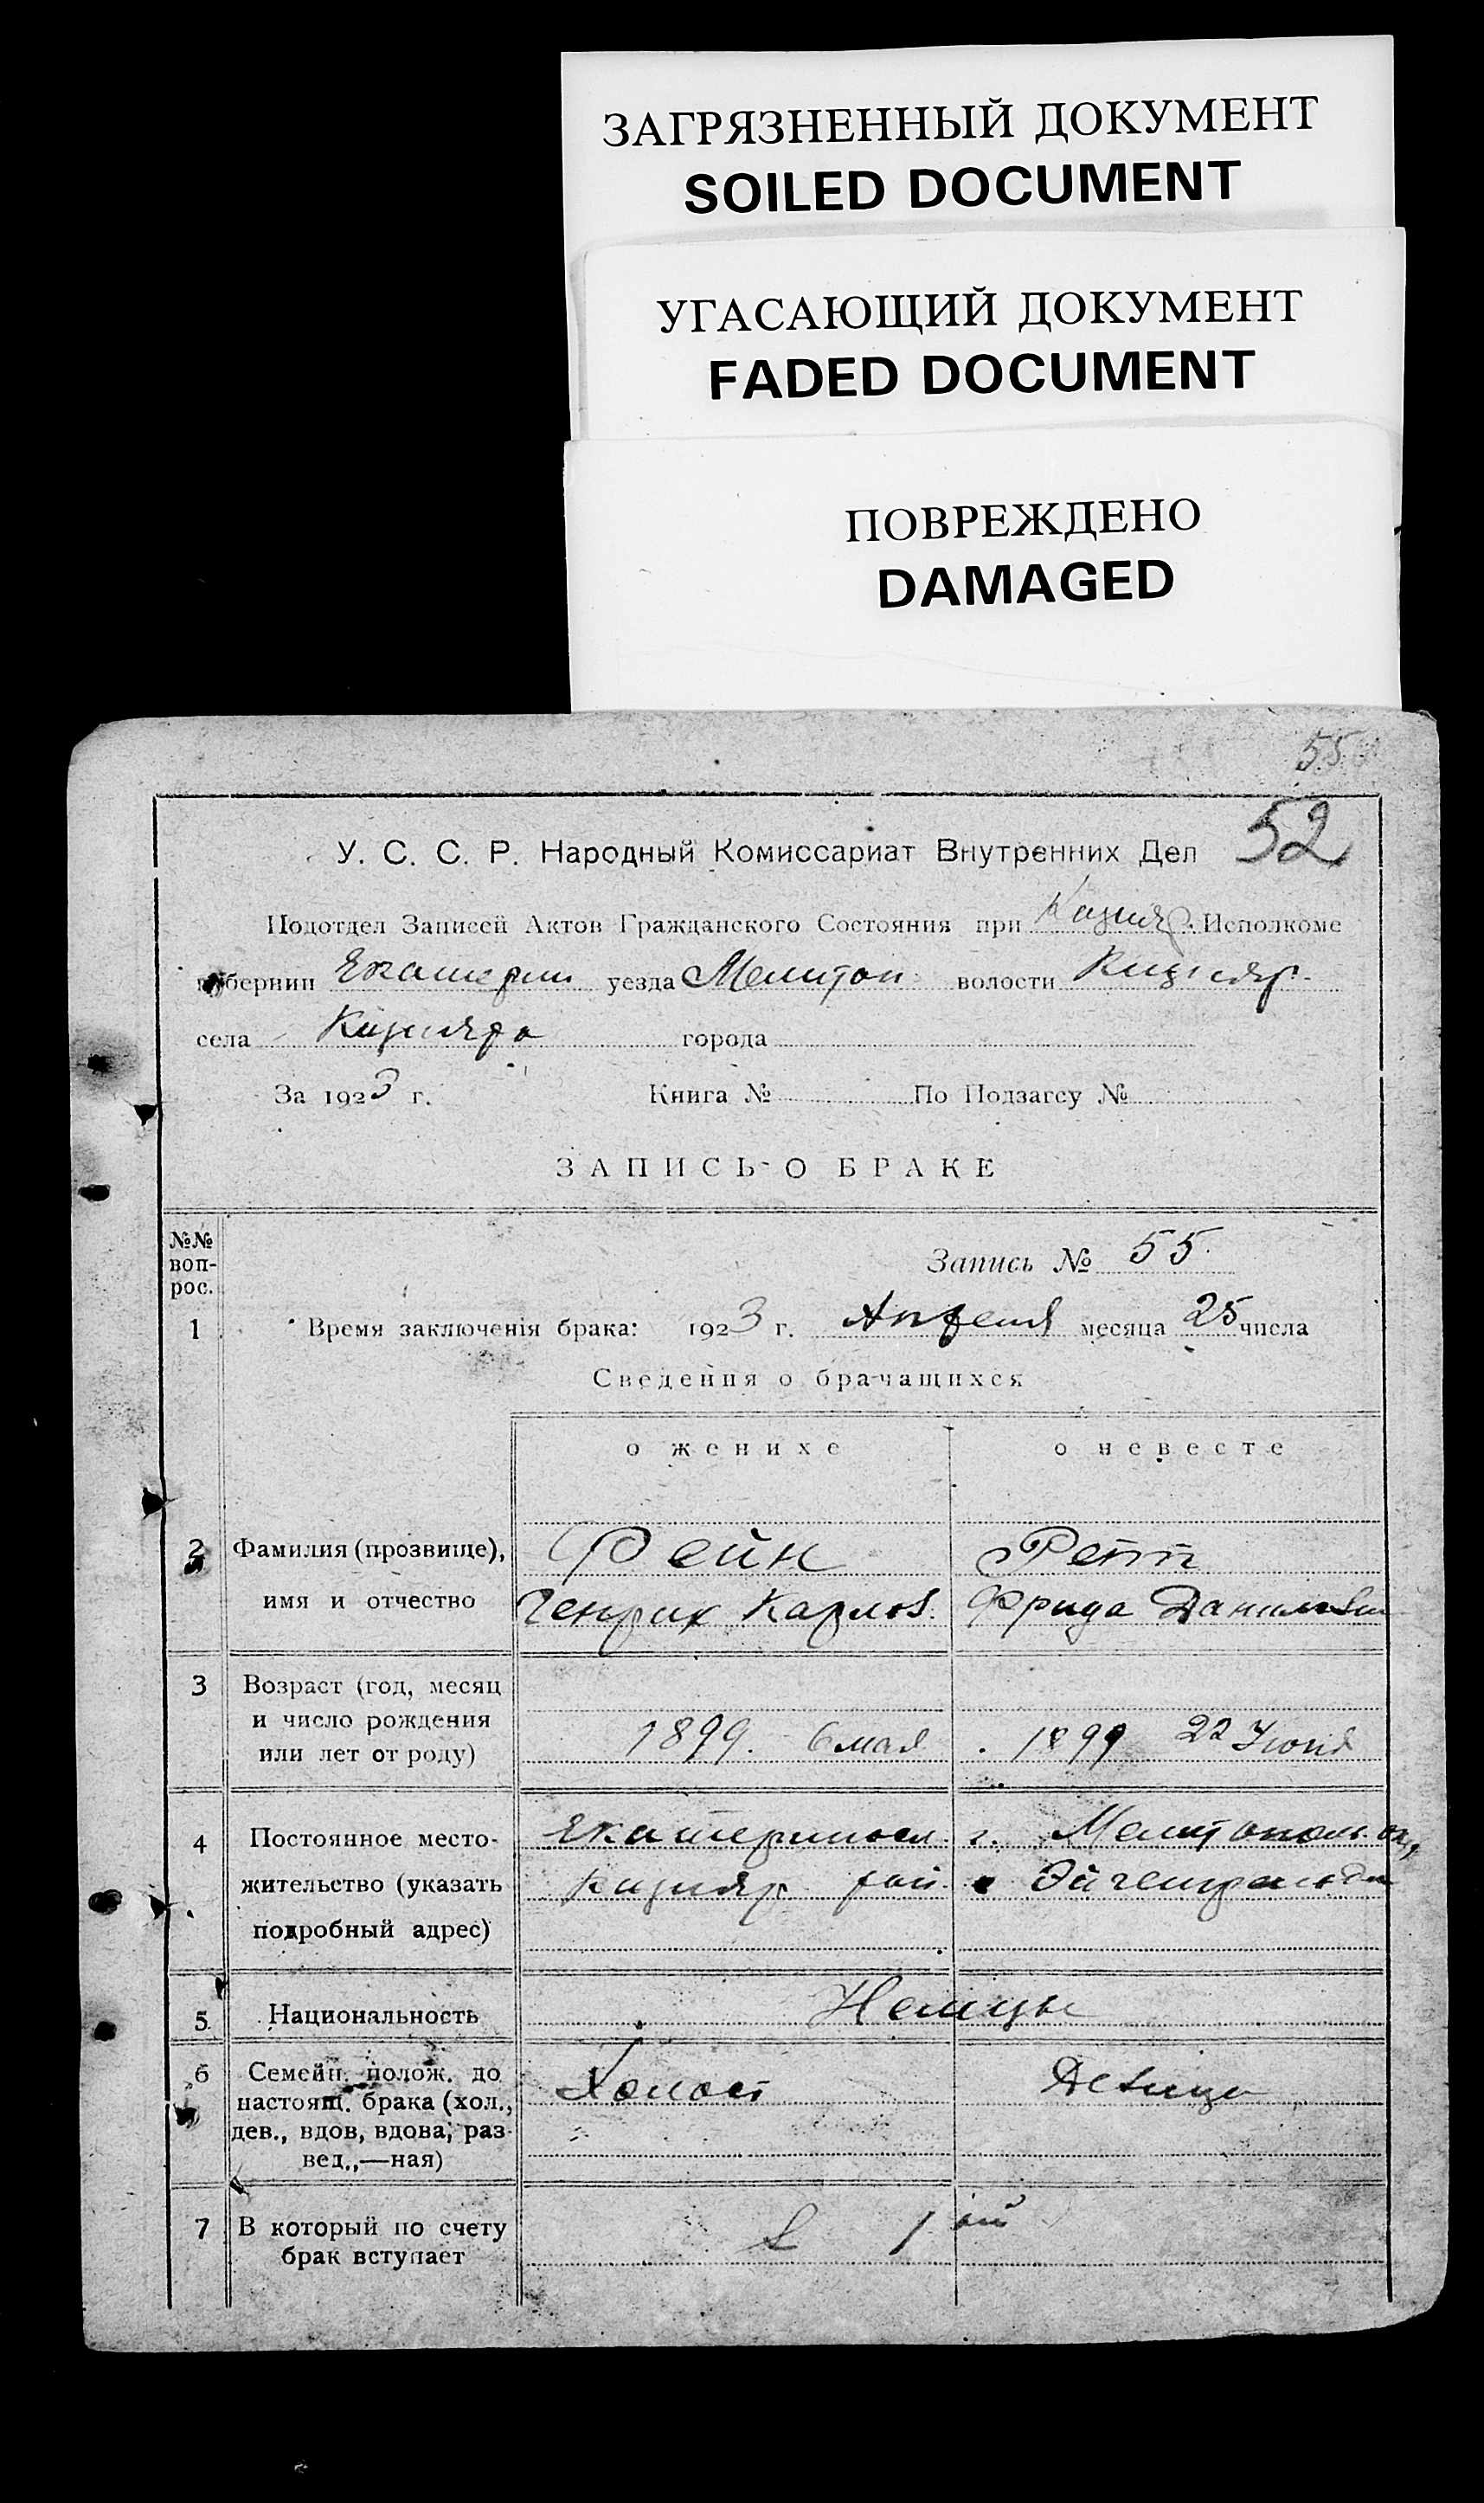 ЗАГРЯЗНЕННЫЙ ДОКУМЕНТ
SOILED DOCUMENT
УГАСАЮЩИЙ ДОКУМЕНТ
FADED DOCUMENT
ПОВРЕЖДЕНО
DAMAGED
55
52
У. С. С. Р. Народный Комиссариат Внутренних Дел
Подотдел Записей Актов Гражданского Состояния при Кизияр. Исполкоме
губернии Екатерин уезда Мелитоп. волости Кизияр.
села Кизияра города
За 1923 г. Книга № По Подзагсу №
ЗАПИСЬ О БРАКЕ
№№ воп-рос.
Запись № 55.
1 Время заключенія брака: 1923 г. Апреля месяца 25 числа
Сведения о брачащихся
о женихе о невесте
2 Фамилия (прозвище), Фейн Репп
имя и отчество Генрих Карлов. Фрида Данилов
3 Возраст (год, месяц
и число рождения
или лет от роду) 1899. 6 мая 1899 22 Июня
4 Постоянное место- Екатериносл. г. Мелитополь
жительство (указать Кизияр. рай.
подробный адрес)
5 Национальность Немцы
6 Семейн. полож. до Холост Девица
настоящ. брака (хол.,
дев., вдов, вдова, раз-
вед.,—ная)
7 В который по счету В 1ый
брак вступает